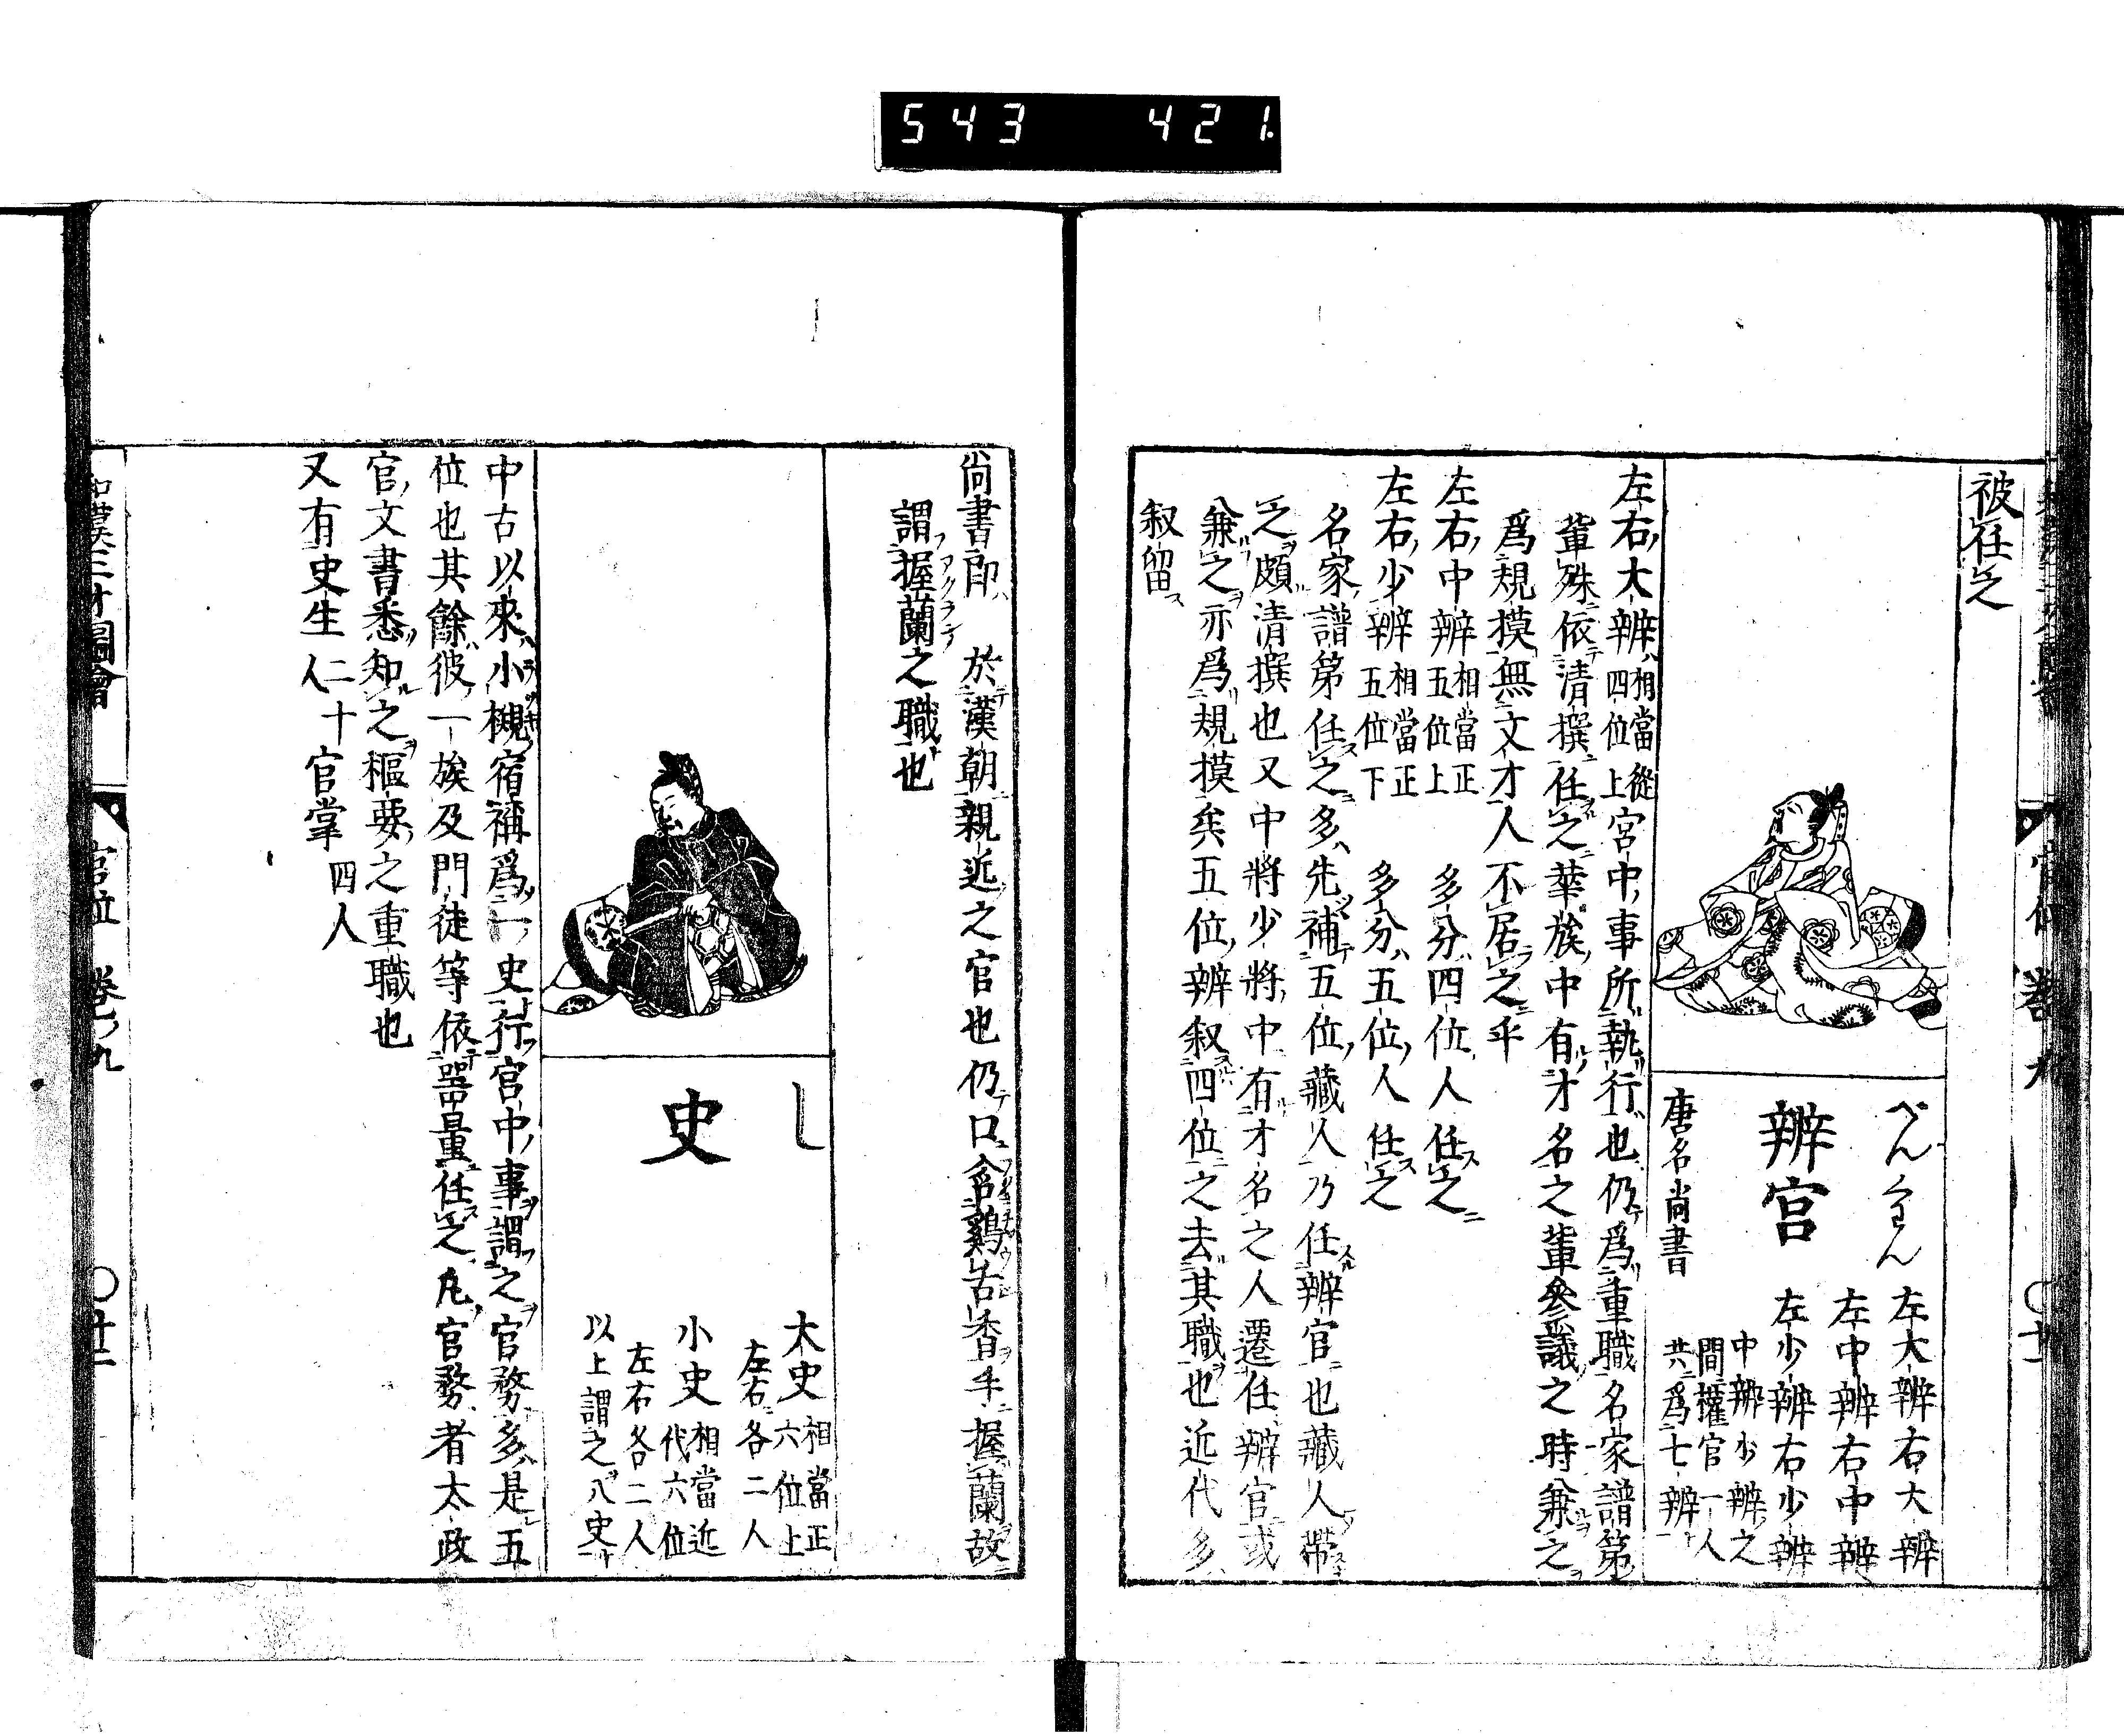 543 421
被任之
べんくはん
辨官
唐名尚書
左大辨右大辨
左中辨右中辨
左少辨右少辨
中辨少辨之
間權官一人
共爲七辨
左右大辨 相當從四位上 宮中事所執行也仍爲重職名家譜第
輩殊依清撰任之華族中有才名之輩參議之時兼之
爲規摸無文才人不居之乎
左右中辨 相當正五位上 多分四位人任之
左右少辨 相當正五位下 多分五位人任之
名家譜第任之多先補五位藏人乃任辨官也藏人帶
之頗清撰也又中將少將中有才名之人遷任辨官或
兼之亦爲規摸矣五位辨叙四位之去其職也近代多
叙留
尚書郎 於漢朝親近之官也仍口含鷄舌香手握蘭故
謂握蘭之職也
し
史
大史 相當正六位上
左右各二人
小史 相當近代六位
左右各二人
以上謂之八史
中古以來小槻宿祢爲一史行官中事謂之官務多是五
位也其餘彼一族及門徒等依器量任之凡官務者太政
官文書悉知之樞要之重職也
又有史生二十人 官掌四人
和漢三才圖會 官位 卷九 〇廿一